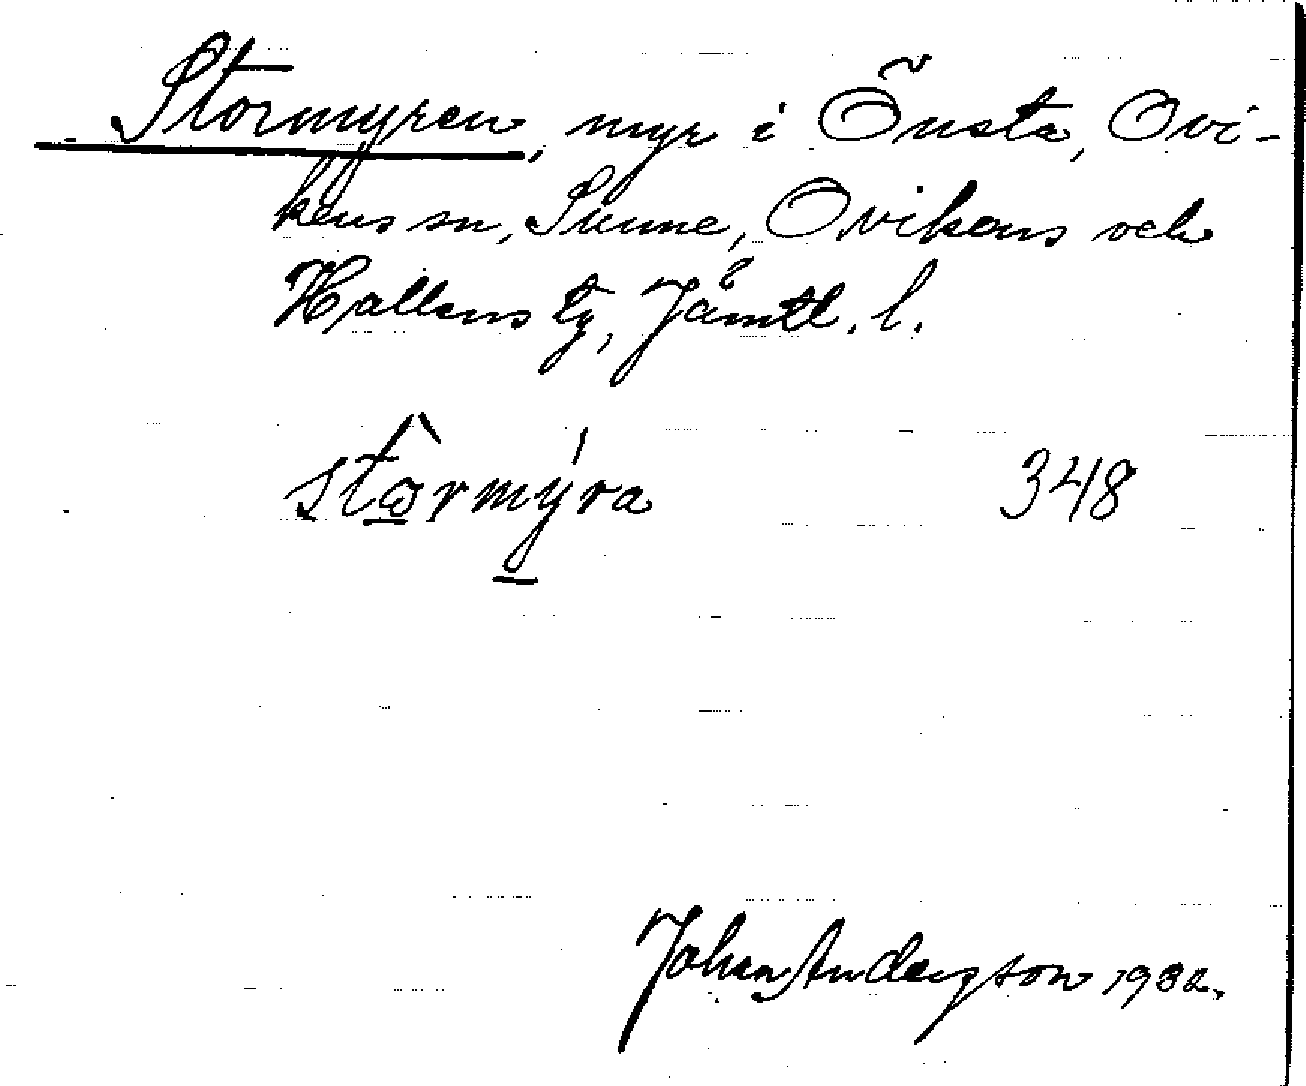 Stormyren, myr i Önsta, Ovi-
kens sn, Sunne, Ovikens och
Hallens tg, Jämtl. l.
stòrmýra 348
Johan Anderson 1932.